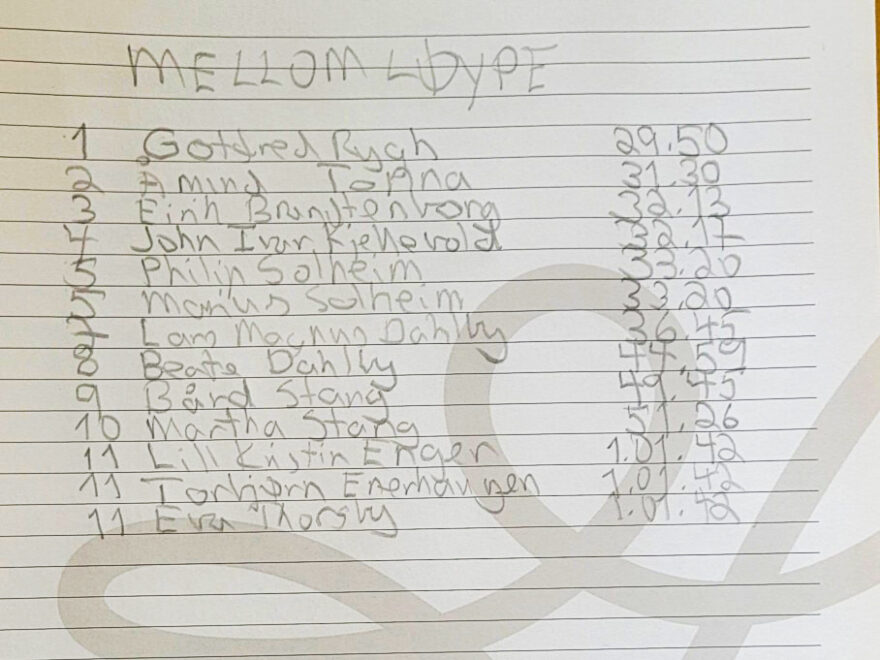 MELLOM LØYPE
1 Gotfred Rygh 29.50
2 Amund Topna 31.30
3 Eirik Brandtenborg 32.13
4 John Ivar Kjelle 32.17
5 Philip Solheim 33.20
5 Marius Solheim 33.20
7 Lam Magnus Dahlby 36.45
8 Beate Dahlby 44.59
9 Bård Stang 49.45
10 Martha Stang 51.26
11 Lill Kristin Enger 1.01.42
11 Torbjørn Enerhaugen 1.01.42
11 Thorsby 1.01.42